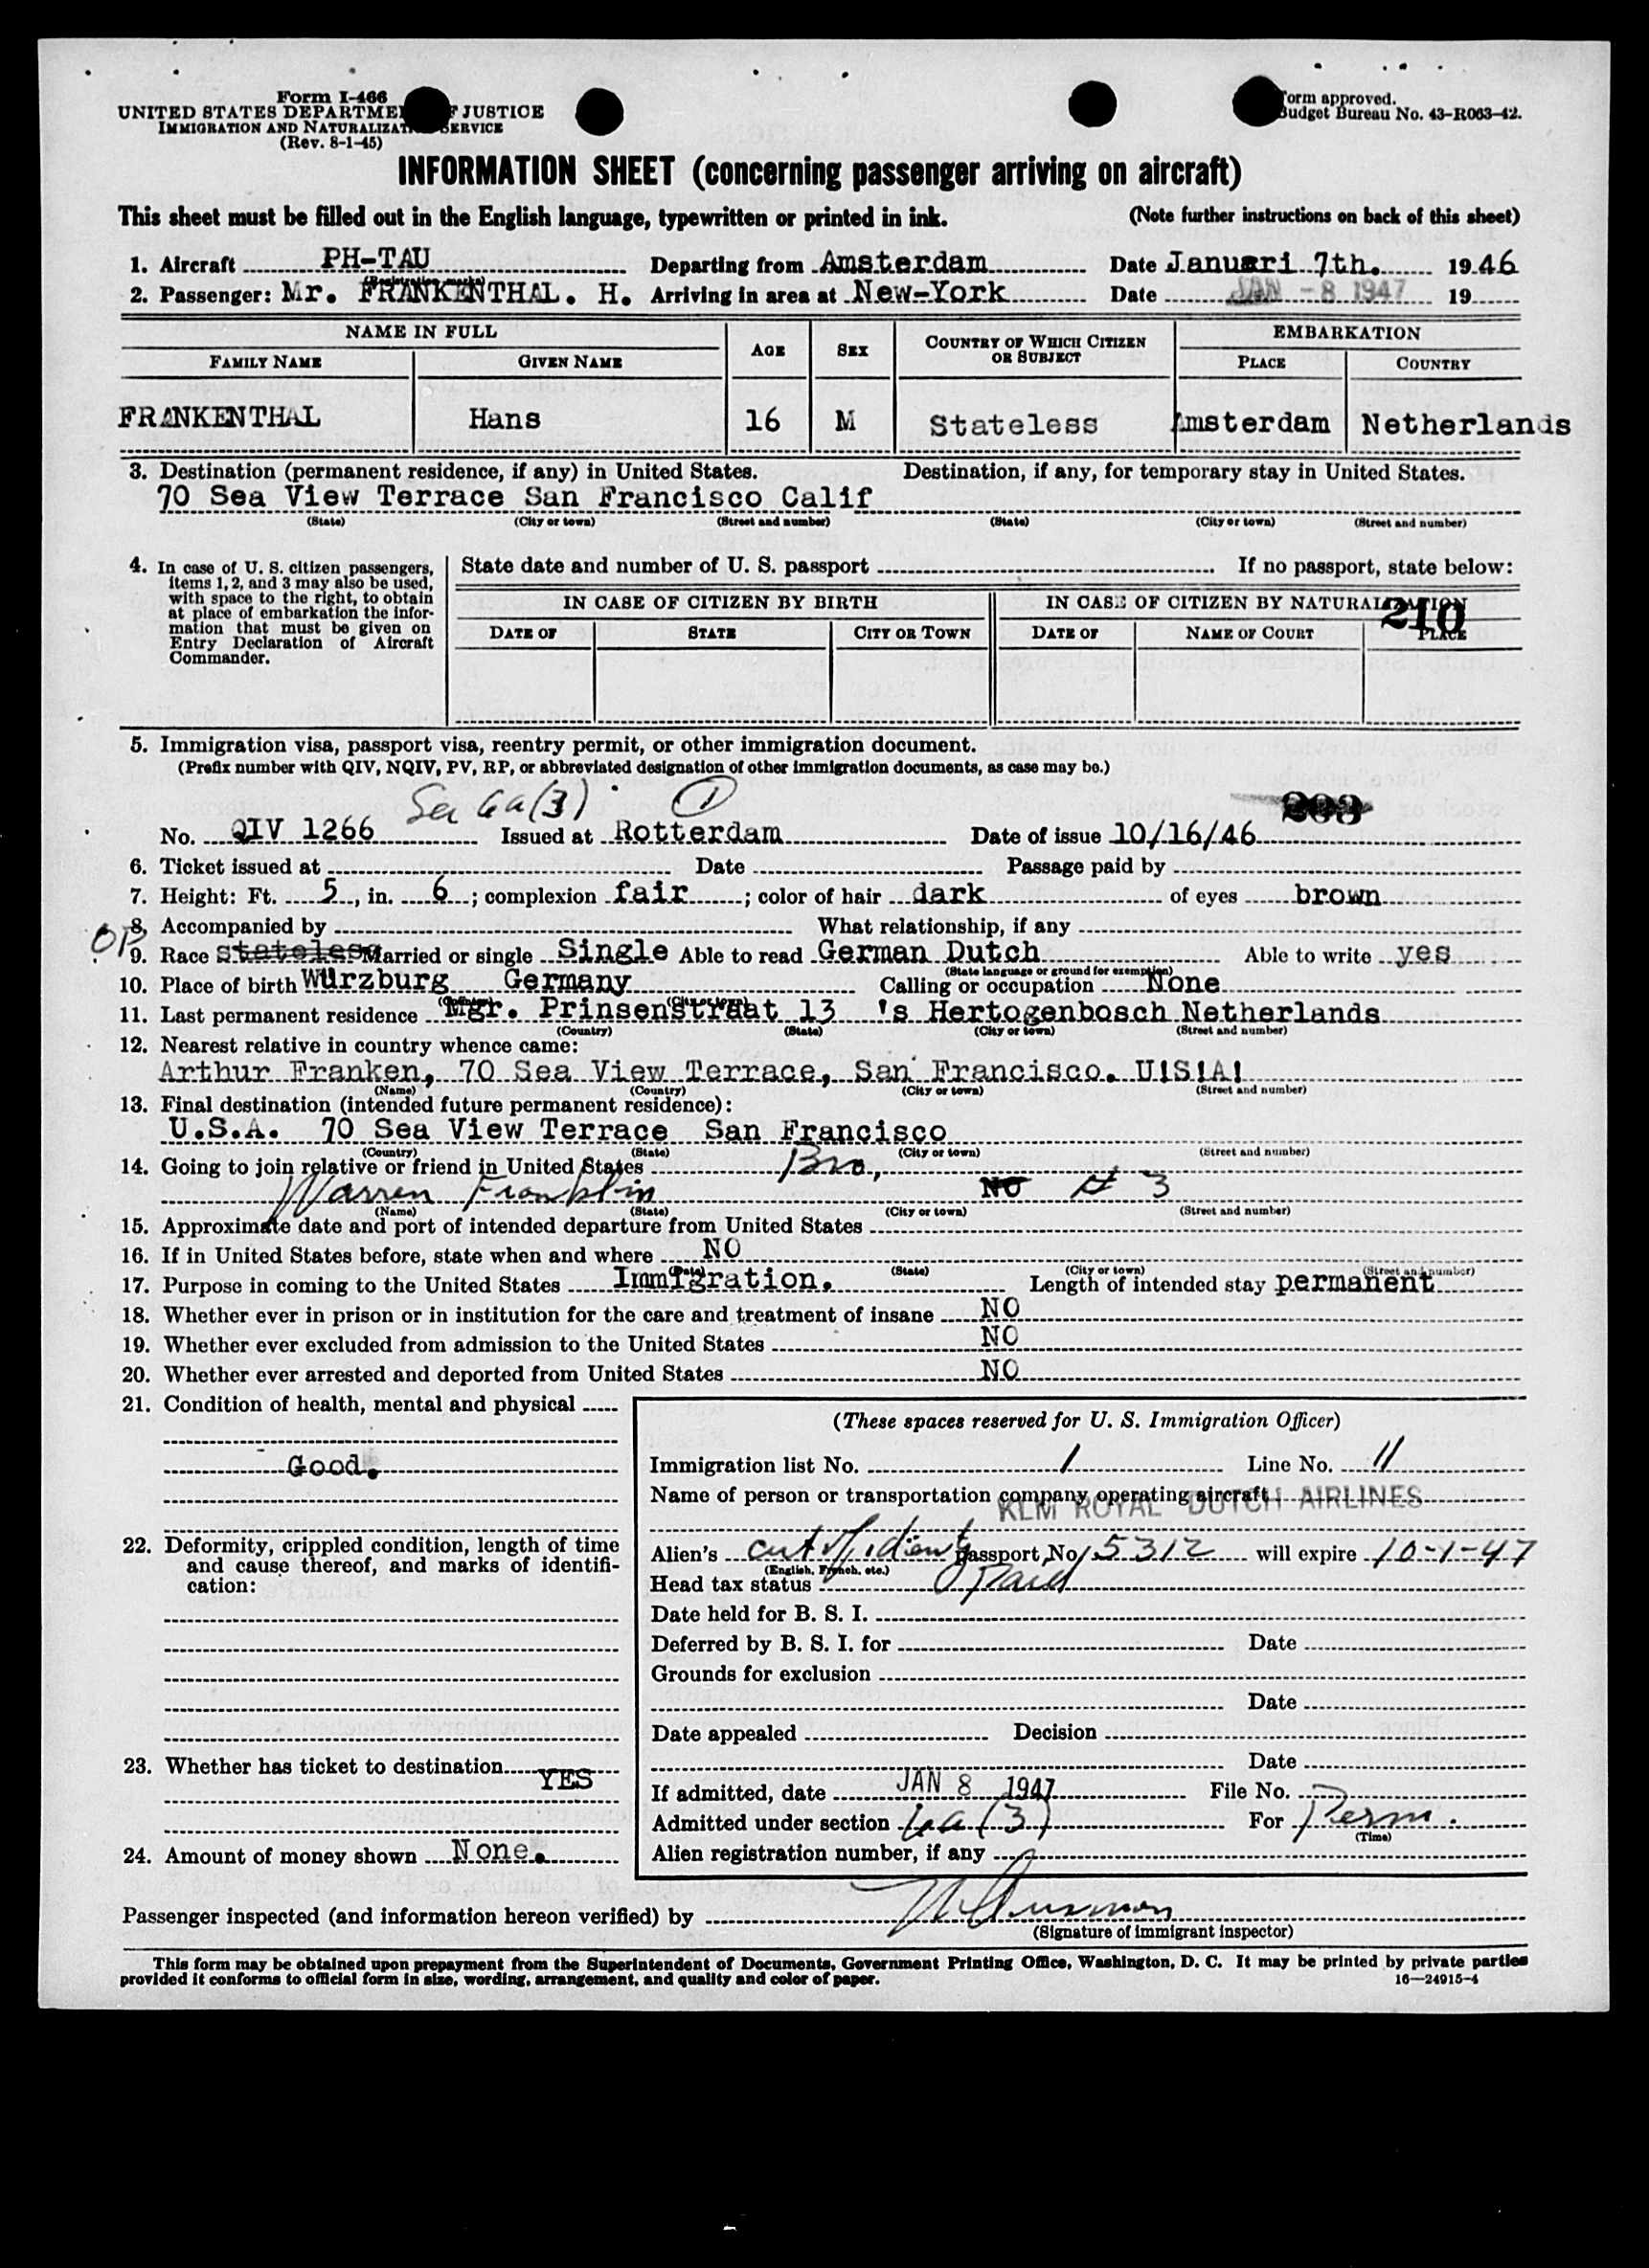 Form I-466
UNITED STATES DEPARTMENT OF JUSTICE
IMMIGRATION AND NATURALIZATION SERVICE
(Rev. 8-1-45)
Form approved.
Budget Bureau No. 43-R063-42.
INFORMATION SHEET (concerning passenger arriving on aircraft)
This sheet must be filled out in the English language, typewritten or printed in ink. (Note further instructions on back of this sheet)
1. Aircraft PH-TAU Departing from Amsterdam Date Januari 7th. 1946
(Registration marks)
2. Passenger: Mr. FRANKENTHAL. H. Arriving in area at New-York Date JAN -8 1947 19
NAME IN FULL AGE SEX COUNTRY OF WHICH CITIZEN OR SUBJECT EMBARKATION
FAMILY NAME GIVEN NAME PLACE COUNTRY
FRANKENTHAL Hans 16 M Stateless Amsterdam Netherlands
3. Destination (permanent residence, if any) in United States. Destination, if any, for temporary stay in United States.
70 Sea View Terrace San Francisco Calif
(State) (City or town) (Street and number) (State) (City or town) (Street and number)
4. In case of U. S. citizen passengers, items 1, 2, and 3 may also be used, with space to the right, to obtain at place of embarkation the information that must be given on Entry Declaration of Aircraft Commander.
State date and number of U. S. passport If no passport, state below:
IN CASE OF CITIZEN BY BIRTH IN CASE OF CITIZEN BY NATURALIZATION
210
DATE OF STATE CITY OR TOWN DATE OF NAME OF COURT PLACE
5. Immigration visa, passport visa, reentry permit, or other immigration document.
(Prefix number with QIV, NQIV, PV, RP, or abbreviated designation of other immigration documents, as case may be.)
Sec 6a(3) 1 203
No. QIV 1266 Issued at Rotterdam Date of issue 10/16/46
6. Ticket issued at Date Passage paid by
7. Height: Ft. 5, in. 6; complexion fair; color of hair dark of eyes brown
8. Accompanied by What relationship, if any
9. Race stateless Married or single Single Able to read German Dutch Able to write yes
(State language or ground for exemption)
10. Place of birth Würzburg Germany Calling or occupation None
(Country) (City or town)
11. Last permanent residence Mgr. Prinsenstraat 13 's Hertogenbosch Netherlands
(Country) (State) (City or town) (Street and number)
12. Nearest relative in country whence came:
Arthur Franken, 70 Sea View Terrace, San Francisco. U!S!A!
(Name) (Country) (City or town) (Street and number)
13. Final destination (intended future permanent residence):
U.S.A. 70 Sea View Terrace San Francisco
(Country) (State) (City or town) (Street and number)
14. Going to join relative or friend in United States Bro,
Warren Franklin NO # 3
(Name) (State) (City or town) (Street and number)
15. Approximate date and port of intended departure from United States
16. If in United States before, state when and where NO
(Date) (State) (City or town) (Street and number)
17. Purpose in coming to the United States Immigration. Length of intended stay permanent
18. Whether ever in prison or in institution for the care and treatment of insane NO
19. Whether ever excluded from admission to the United States NO
20. Whether ever arrested and deported from United States NO
21. Condition of health, mental and physical
Good.
22. Deformity, crippled condition, length of time and cause thereof, and marks of identification:
23. Whether has ticket to destination YES
24. Amount of money shown None.
(These spaces reserved for U. S. Immigration Officer)
Immigration list No. 1 Line No. 11
Name of person or transportation company operating aircraft KLM ROYAL DUTCH AIRLINES
Alien's passport No. 5312 will expire 10-1-47
(English, French, etc.)
Head tax status Paid
Date held for B. S. I.
Deferred by B. S. I. for Date
Grounds for exclusion
Date
Date appealed Decision
Date
If admitted, date JAN 8 1947 File No.
Admitted under section 6a(3) For Perm.
(Time)
Alien registration number, if any
Passenger inspected (and information hereon verified) by
(Signature of immigrant inspector)
This form may be obtained upon prepayment from the Superintendent of Documents, Government Printing Office, Washington, D. C. It may be printed by private parties
provided it conforms to official form in size, wording, arrangement, and quality and color of paper. 16—24915-4